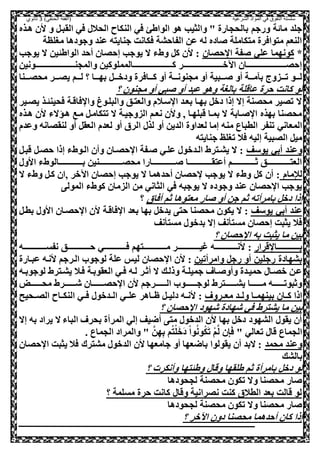 سلسلة التفوق في المواد الشرعية (الفقه الحنفي) 3 ثانوي
جلد مائة ورجم بالحجارة " والثيب هو الواطئ في النكاح الحلال في القبل و لأن هذه
النعم متوافرة متكاملة صاده له عن الفاحشة فكانت جنايته عند وجودها مغلظة
* كونهما على صفة الإحصان : لأن كل وطء لا يوجب إحصان أحد الواطئين لا يوجب
إحصان الآخر كالمملوكين والمجنونين
لو تزوج بأمة أو صبية أو مجنونة أو كافرة ودخل بها ؟ لم يصر محصنا
لو كانت حرة عاقلة بالغة وهو عبد أو صبى أو مجنون ؟
لا تصير محصنة إلا إذا دخل بها بعد الإسلام والعتق والبلوغ والإفاقة فحينئذ يصير
محصنا بهذه الإصابة لا بما قبلها , ولأن نعم الزوجية لا تتكامل مع هؤلاء لأن هذه
المعاني تنفر الطباع منه إما لعداوة الدين أو لذل الرق أو لعدم العقل أو لنقصانه وعدم
ميل الصبية إليه فلا تغلظ جنايته
وعند أبي يوسف : لا يشترط الدخول على صفة الإحصان وأن الوطء إذا حصل قبل
العتق ثم أعتقا صارا محصنين بالوطء الأول
للإمام : أن كل وطء لا يوجب لإحصان أحدهما لا يوجب إحصان الآخر ,إن كل وطء لا
يوجب الإحصان عند وجوده لا يوجبه في الثاني من الزمان كوطء المولى
إذا دخل بامرأته ثم جن أو صار معتوها ثم أفاق ؟
عند أبى يوسف : لا يكون محصنا حتى يدخل بها بعد الإفاقة لأن الإحصان الأول بطل
فلا يثبت إحصان مستأنف إلا بدخول مستأنف
بين ما يثبت به الإحصان ؟
بالإقرار : لأنه غير متهم في حق نفسه
بشهادة رجلين أو رجل وامرأتين : لأن الإحصان ليس علة لوجوب الرجم لأنه عبارة
عن خصال حميدة وأوصاف جميلة وذلك لا أثر له في العقوبة فلا يشترط لوجوبه
وثبوته ما يشترط لوجوب الرجم لأن الإحصان شرط محض
إذا كان بينهما ولد معروف : لأنه دليل ظاهر على الدخول في النكاح الصحيح
بين ما يشترط في شهادة شهود الإحصان ؟
أن يقول الشهود دخل بها لأن الدخول متى أضيف إلي المرأة بحرف الباء لا يراد به إلا
الجماع قال تعالي " فَإِن لَّمْ تَكُونُواْ دَخَلْتُم بِهِنَّ " والمراد الجماع .
وعند محمد : لابد أن يقولوا باضعها أو جامعها لأن الدخول مشترك فلا يثبت الإحصان
بالشك
لو دخل بامرأة ثم طلقها وقال وطئتها وأنكرت ؟
صار محصنا ولا تكون محصنة لجحودها
لو قالت بعد الطلاق كنت نصرانية وقال كانت حرة مسلمة ؟
صار محصنا ولا تكون محصنة لجحودها
إذا كان أحدهما محصنا دون الآخر ؟